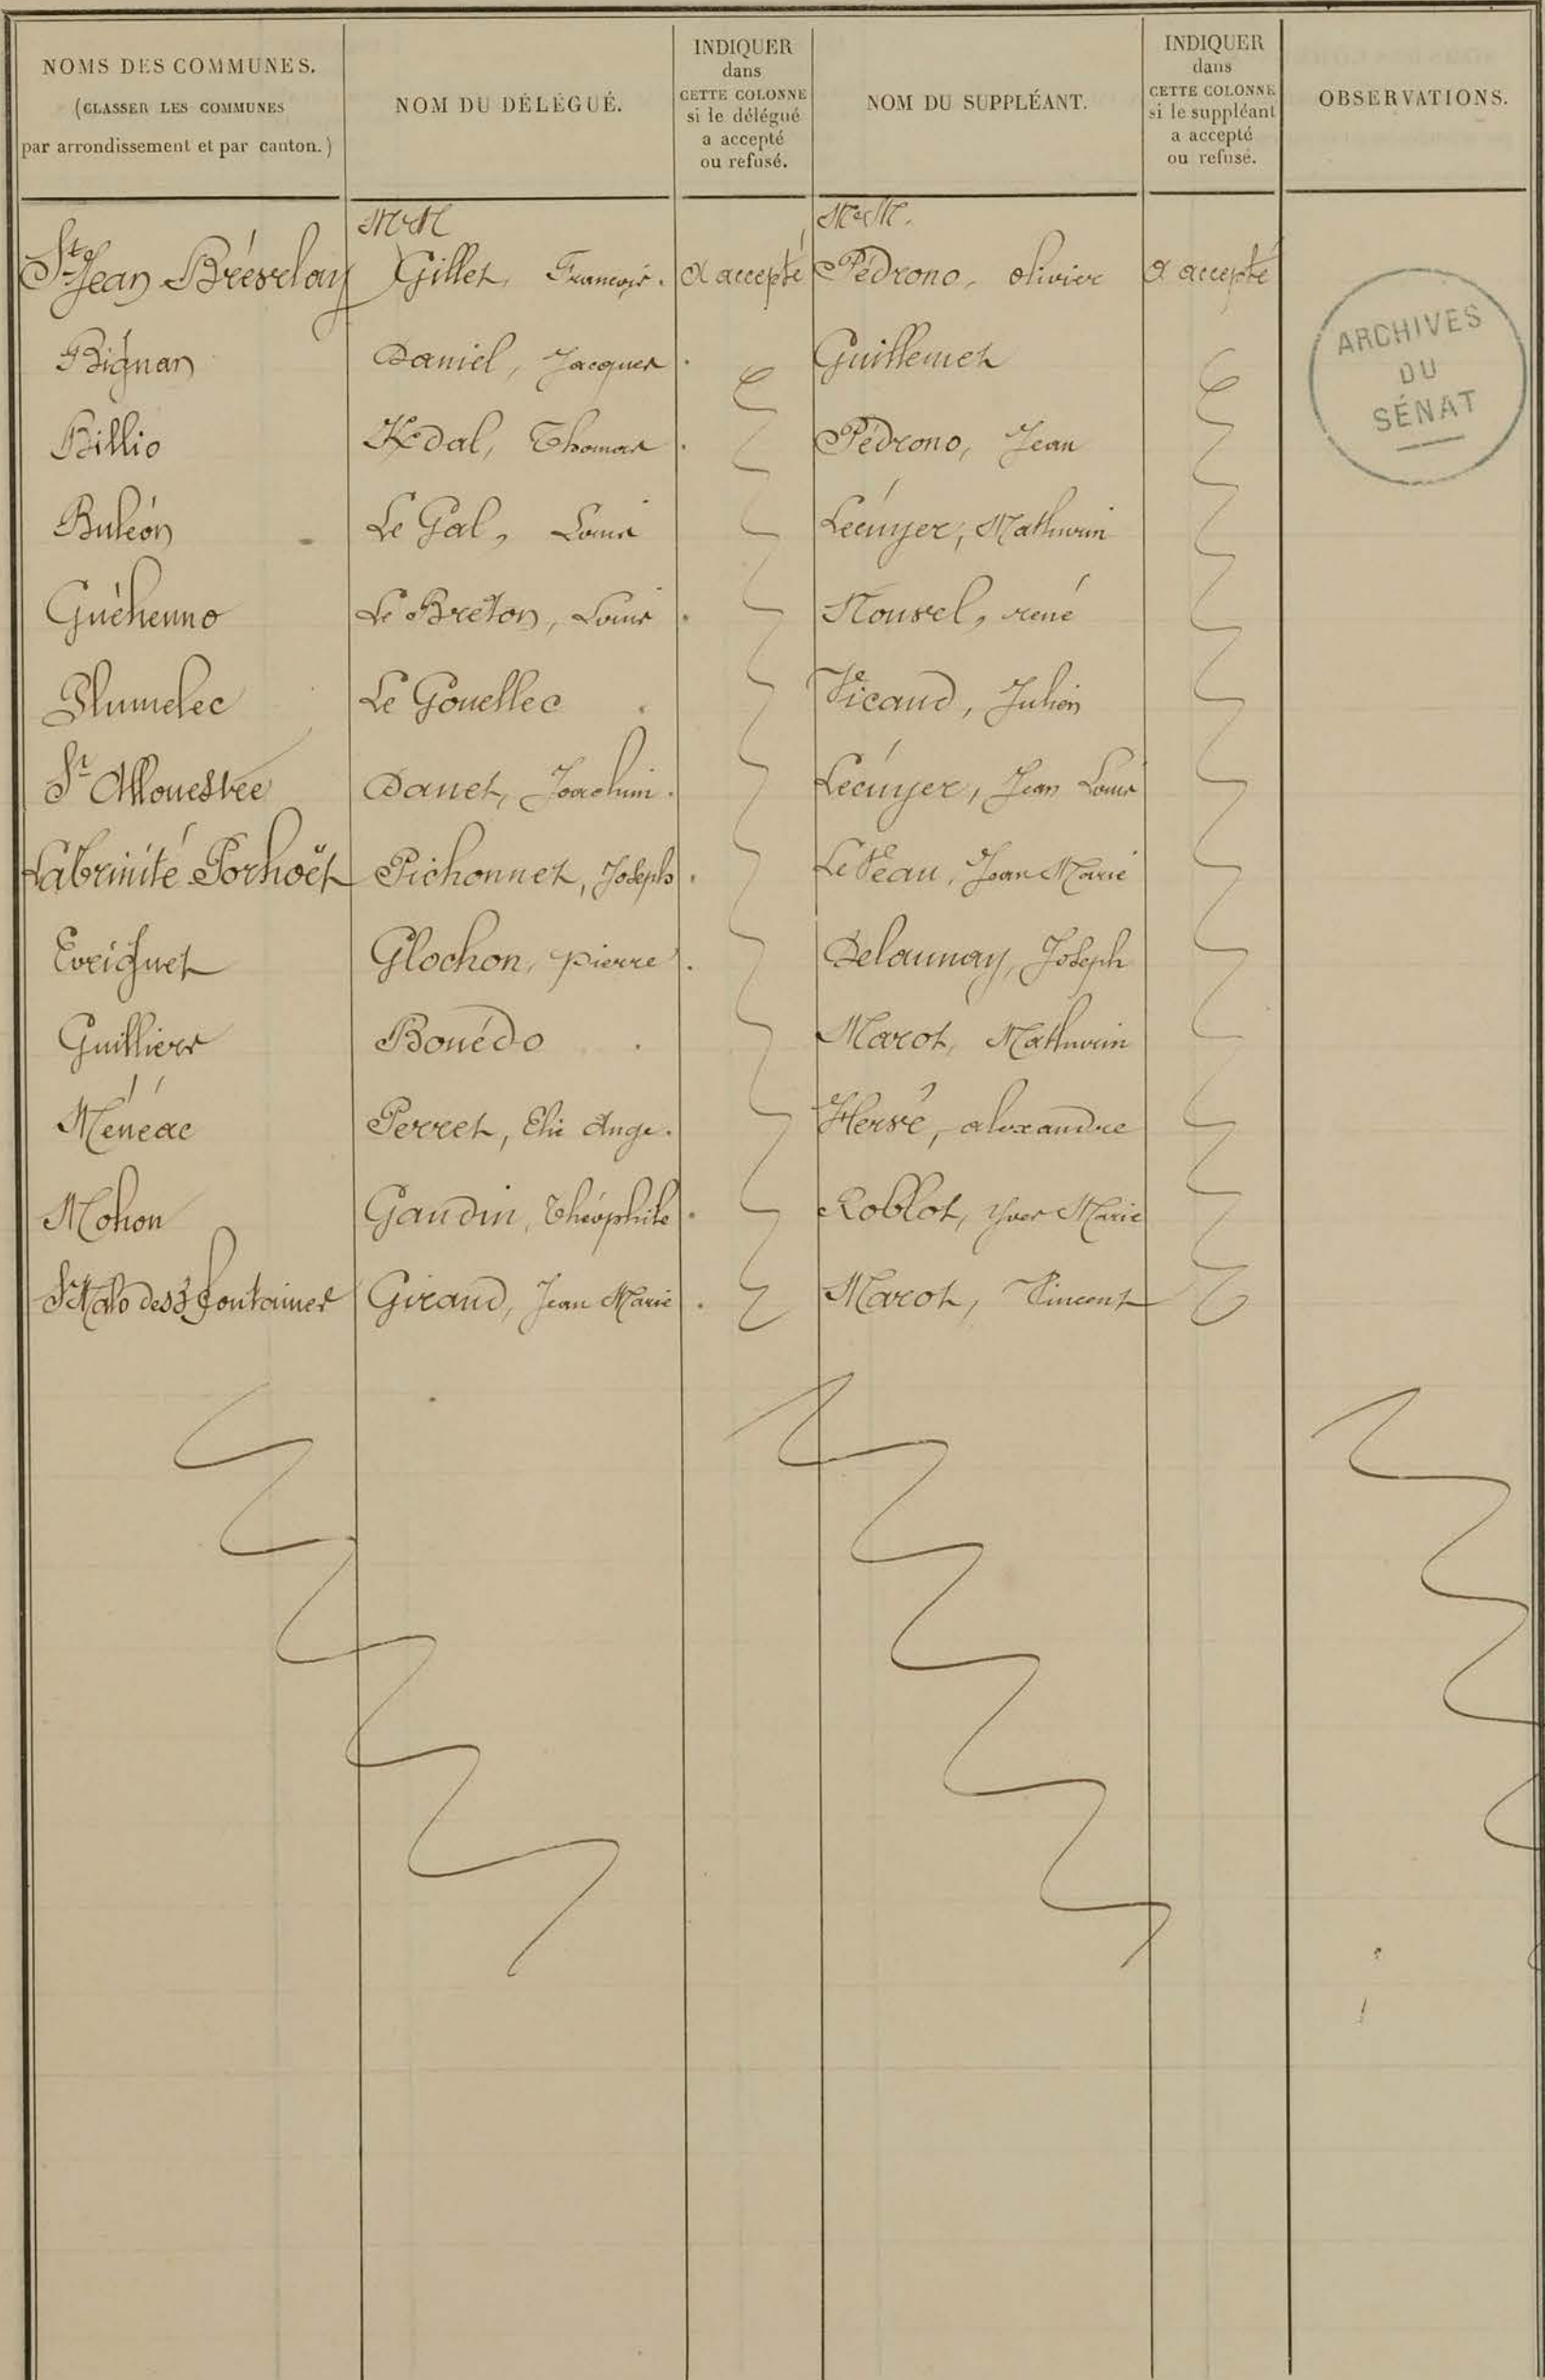 NOMS DES COMMUNES.
(CLASSER LES COMMUNES
par arrondissement et par canton.)
NOM DU DÉLÉGUÉ.
INDIQUER
dans
CETTE COLONNE
si le délégué
a accepté
ou refusé.
NOM DU SUPPLÉANT.
INDIQUER
dans
CETTE COLONNE
si le suppléant
a accepté
ou refusé.
OBSERVATIONS.
MM MM.
St Jean Brévelay Gillet, François. a accepté Pédrono, olivier a accepté
Bignan Daniel, Jacques Guillemet
Billio Kdal, Thomas Pédrono, Jean
Buléon Le Gal, Louis Lecuyer, Mathurin
Guéhenno Le Breton, Louis Nouvel, rené
Plumelec Le Gouellec Vicaud, Julien
St Allouestre Danet, Joachim. Lecuyer, Jean Louis
La Trinité Porhoët Pichonnet, Joseph Le Veau, Jean Marie
Evriguet Glochon, pierre Delaunay, Joseph
Guilliers Bouédo Marot, Mathurin
Ménéac Perret, Elie Ange. Hervé, alexandre
Mohon Gaudin, Théophile Roblot, Yves Marie
St Malo des 3 fontaines Giraud, Jean Marie Marot, Vincent
ARCHIVES
DU
SÉNAT